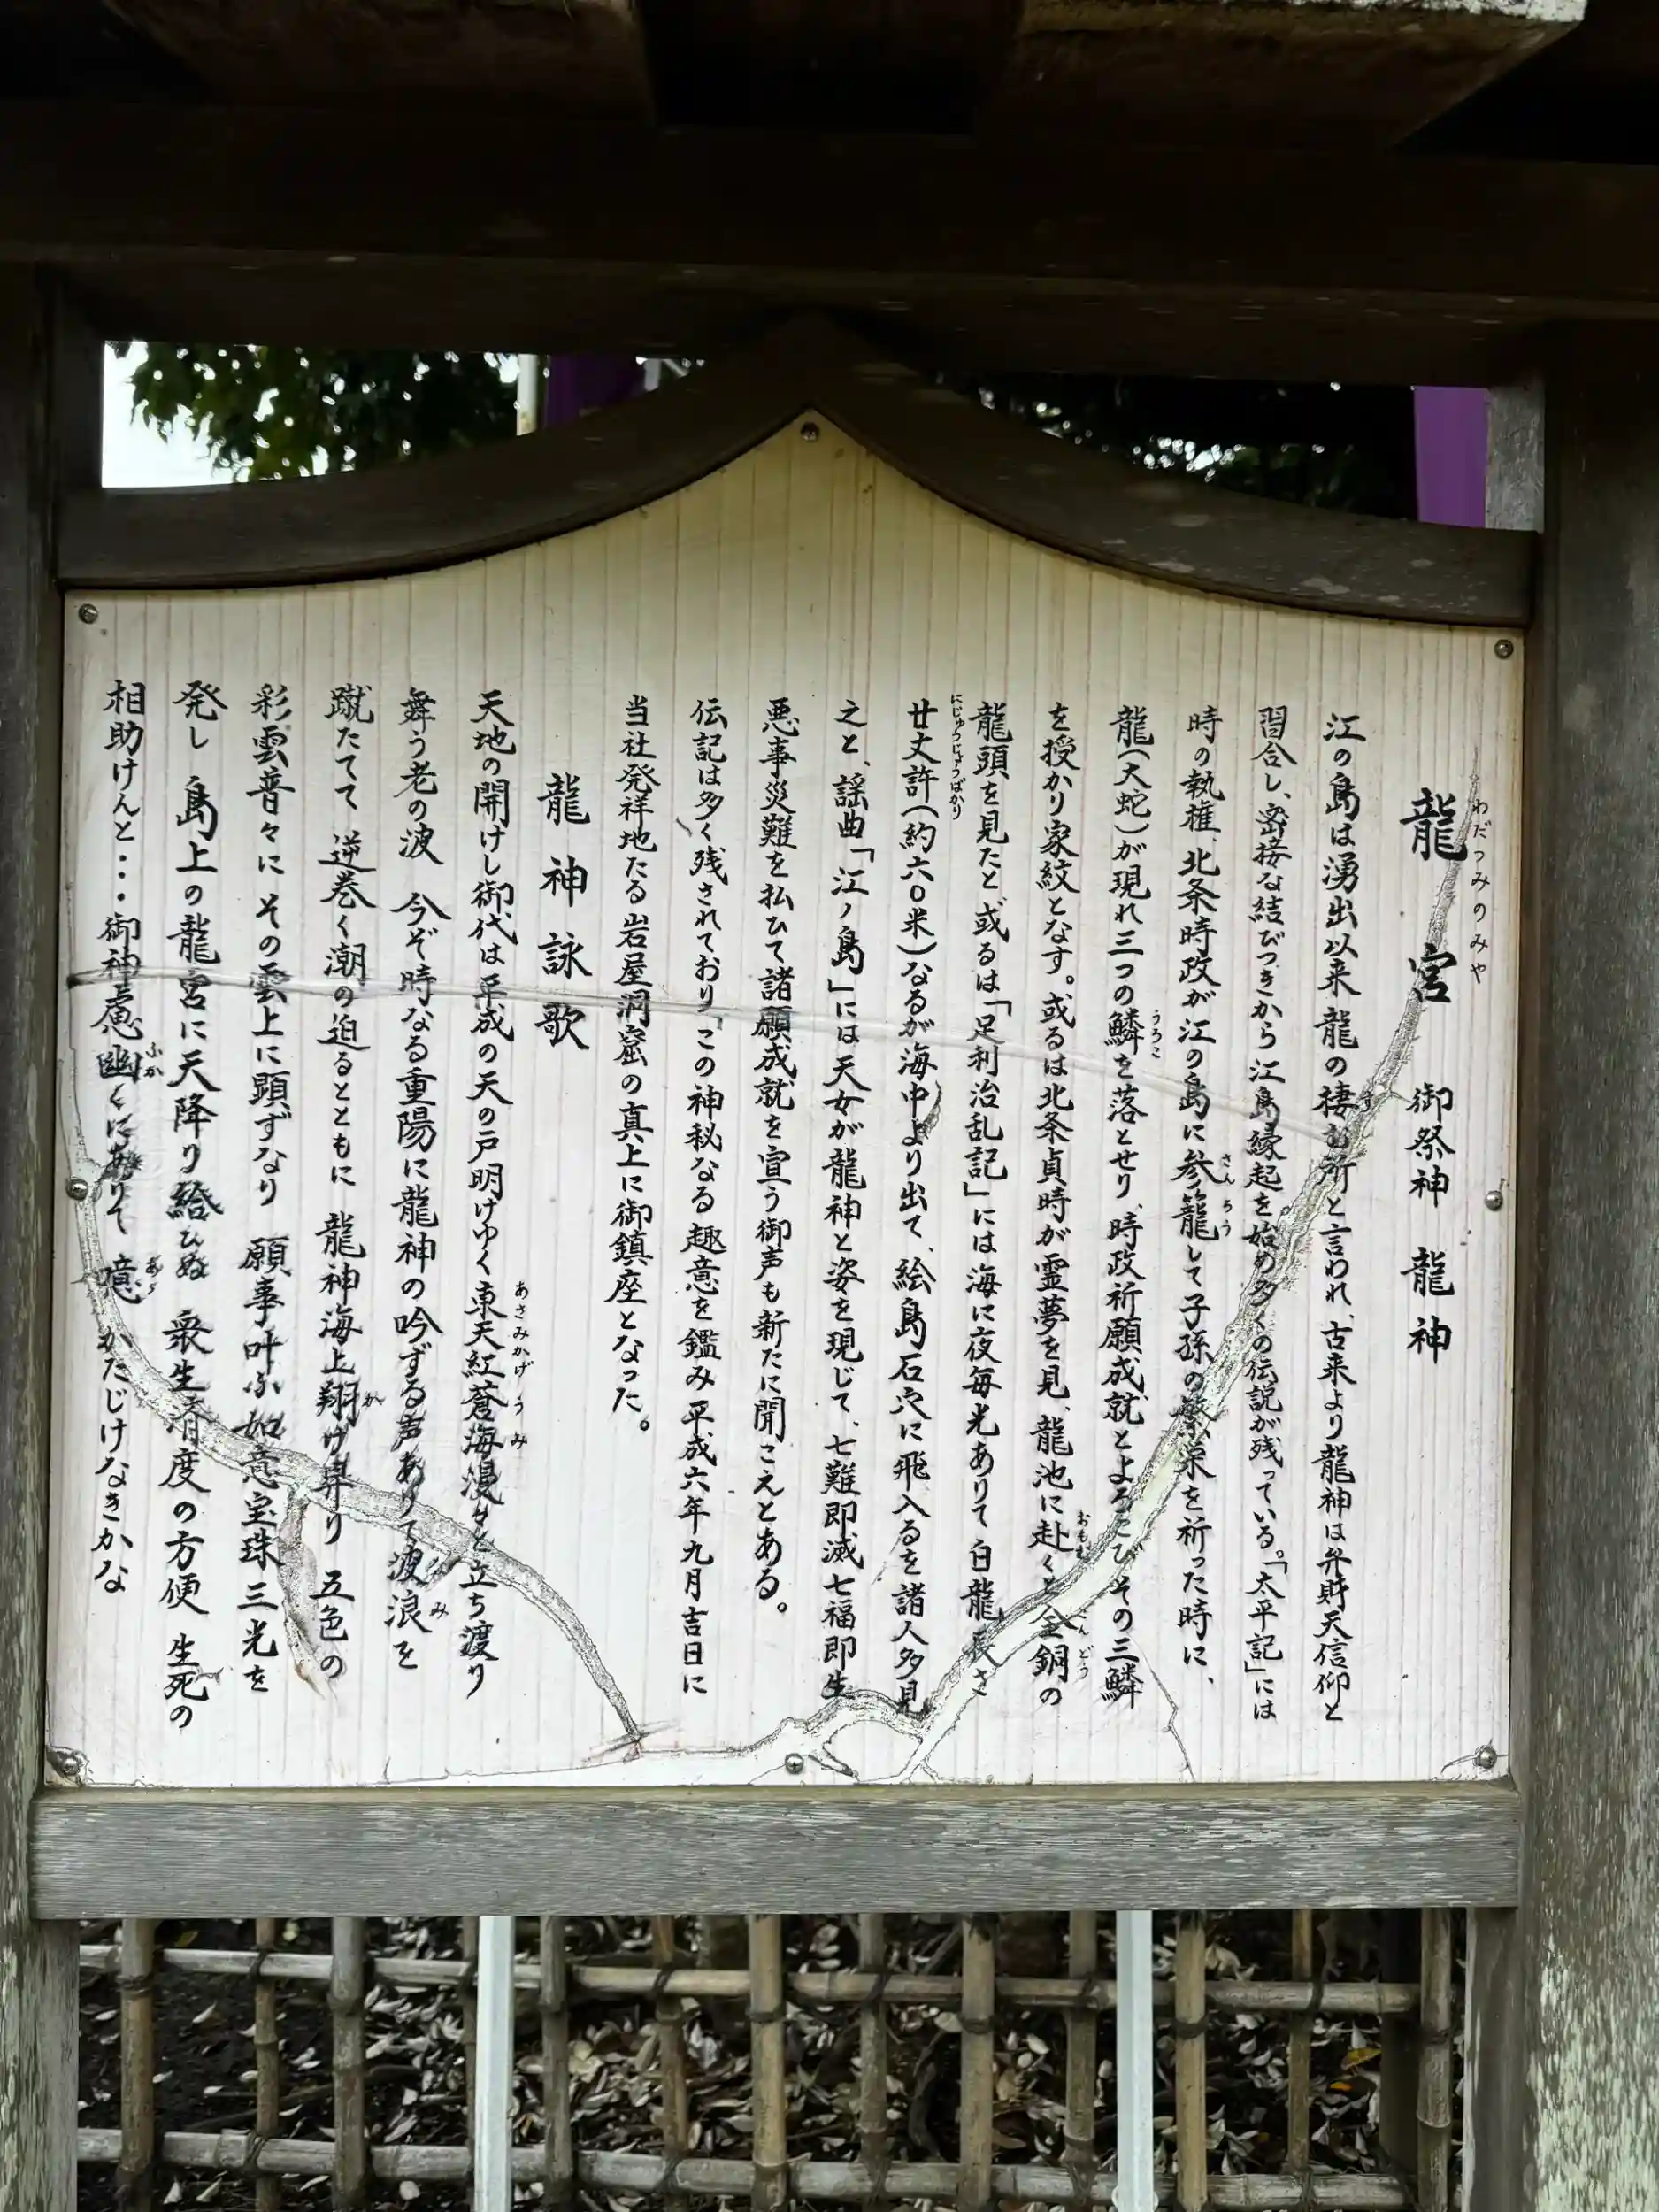 龍宮 御祭神 龍神
わだつみのみや
江の島は湧出以来龍の棲む所と言われ、古来より龍神は弁財天信仰と
す
習合し、密接な結びつきから江島縁起を始め多くの伝説が残っている。「太平記」には
時の執権、北条時政が江の島に参籠して子孫の繁栄を祈った時に、
さんろう
龍(大蛇)が現れ三つの鱗を落とせり、時政祈願成就とよろこびその三鱗
うろこ
を授かり家紋となす。或るは北条貞時が霊夢を見、龍池に赴くと金銅の
おもむ こんどう
龍頭を見たと、或るは「足利治乱記」には海に夜毎光ありて白龍長さ
廿丈許(約六〇米)なるが海中より出て、絵島石穴に飛入るを諸人多見
にじゅうじょうばかり
之と、謡曲「江ノ島」には天女が龍神と姿を現じて、七難即滅七福即生
悪事災難を払ひて諸願成就を宣う御声も新たに聞こえとある。
伝記は多く残されており、この神秘なる趣意を鑑み平成六年九月吉日に
当社発祥地たる岩屋洞窟の真上に御鎮座となった。
龍神詠歌
天地の開けし御代は平成の天の戸明けゆく東天紅蒼海漫々と立ち渡り
あさみかげ うみ
舞う老の波 今ぞ時なる重陽に龍神の吟ずる声ありて波浪を
み
蹴たてて 逆巻く潮の迫るとともに 龍神海上翔け昇り 五色の
か
彩雲音々に その雲上に顕ずなり 願事叶ふ如意宝珠三光を
発し 島上の龍宮に天降り給ひぬ 衆生済度の方便 生死の
相助けんと・・・御神慮幽くにありて 噫 かたじけなきかな
ふか ああ